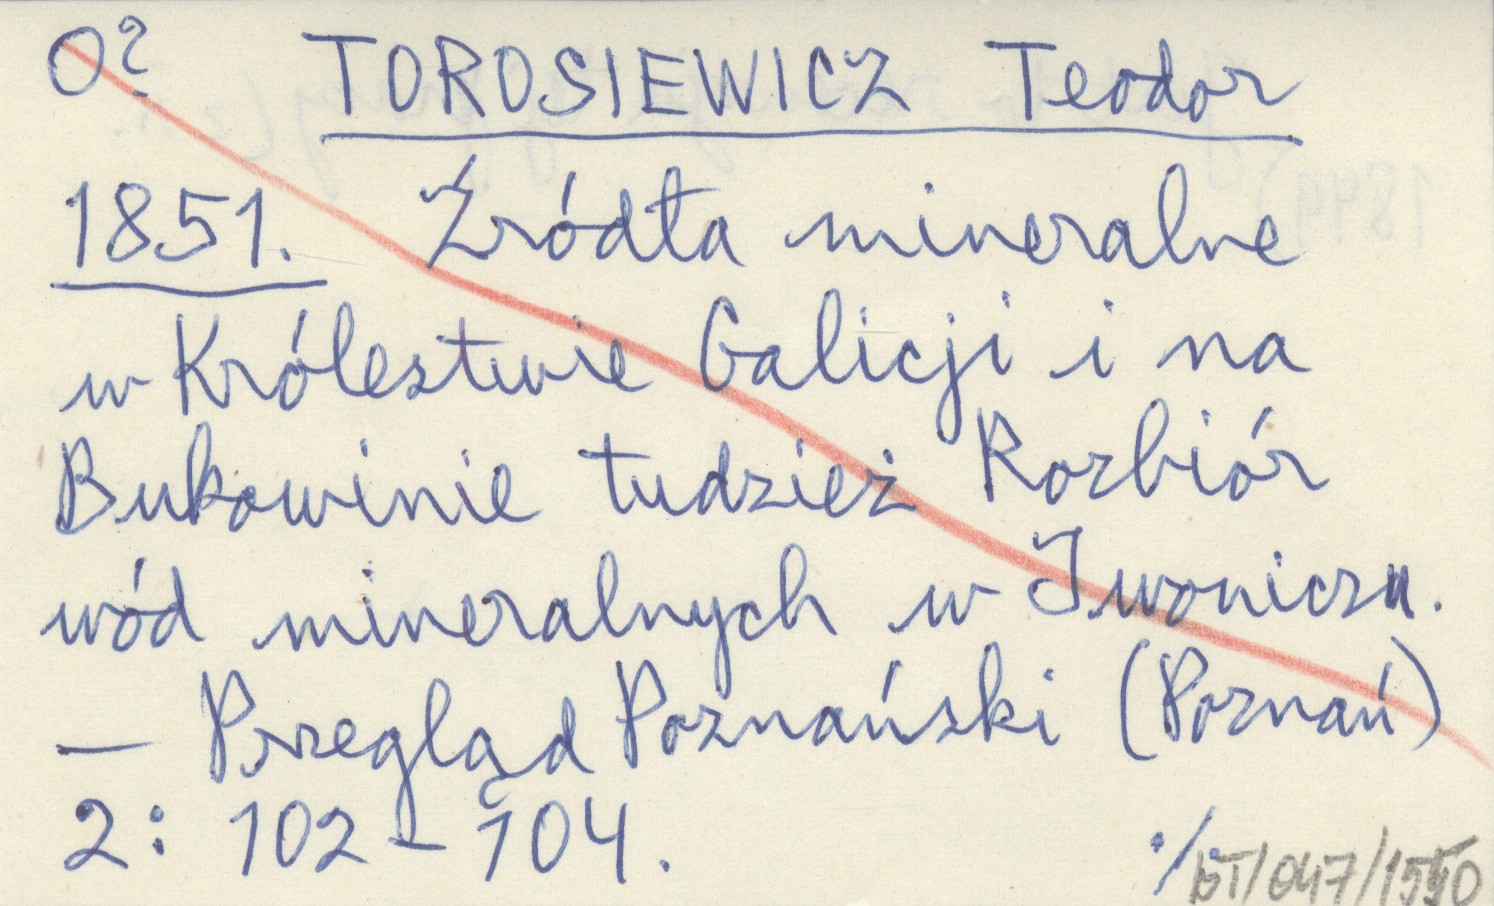 O? TOROSIEWICZ Teodor
1851. Źródła mineralne
w Królestwie Galicji i na
Bukowinie tudzież Rozbiór
wód mineralnych w Iwoniczu.
— Przegląd Poznański (Poznań)
2: 102-104.
./.